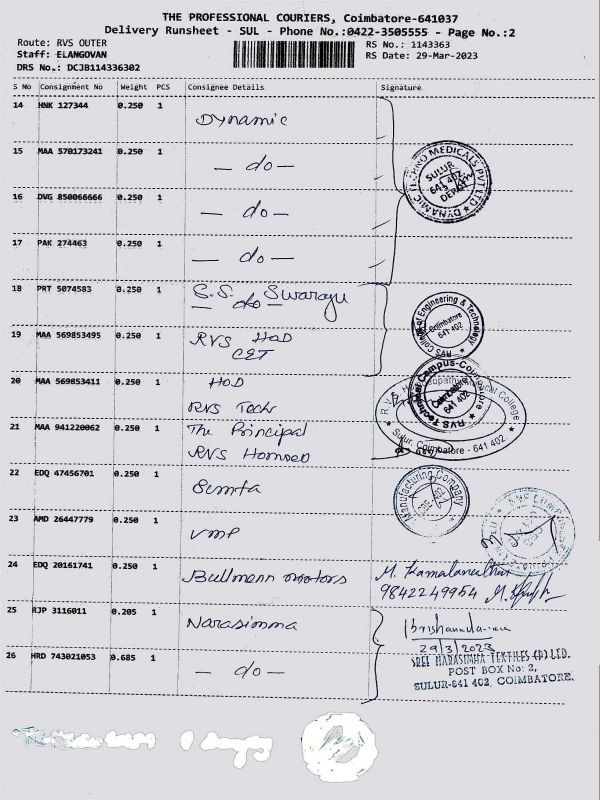 THE PROFESSIONAL COURIERS, Coimbatore-641037
Delivery Runsheet - SUL - Phone No.:0422-3505555 - Page No.:2
Route: RVS OUTER
Staff: ELANGOVAN
DRS No.: DCJB114336302
RS No.: 1143363
RS Date: 29-Mar-2023
S No Consignment No Weight PCS Consignee Details Signature
14 HNK 127344 0.250 1 Dynamic
15 MAA 570173241 0.250 1 — do —
DYNAMIC TECHNO MEDICALS PVT LTD
SULUR
641 402
16 DVG 850066666 0.250 1 — do —
17 PAK 274463 0.250 1 — do —
18 PRT 5074583 0.250 1 S.S. Swaraju
— do —
College of Engineering & Technology
Coimbatore
641 402
RVS
19 MAA 569853495 0.250 1 RVS HOD
CET
20 MAA 569853411 0.250 1 HOD
RVS Tech
RVS Technical Campus-Coimbatore
Coimbatore
641 402
21 MAA 941220062 0.250 1 The Principal
RVS Homoeo
R.V.S. Homoeopathic Medical College
Sulur, Coimbatore - 641 402.
22 EDQ 47456701 0.250 1
Manufacturing Company
23 AMD 26447779 0.250 1 VMP
24 EDQ 20161741 0.250 1 Bullmenn motors
9842249954
25 RJP 3116011 0.205 1 Narasimma
29/3/2023
26 HRD 743021053 0.685 1 — do —
SREE NARASIMHA TEXTILES (P) LTD.
POST BOX No: 2,
SULUR-641 402, COIMBATORE.